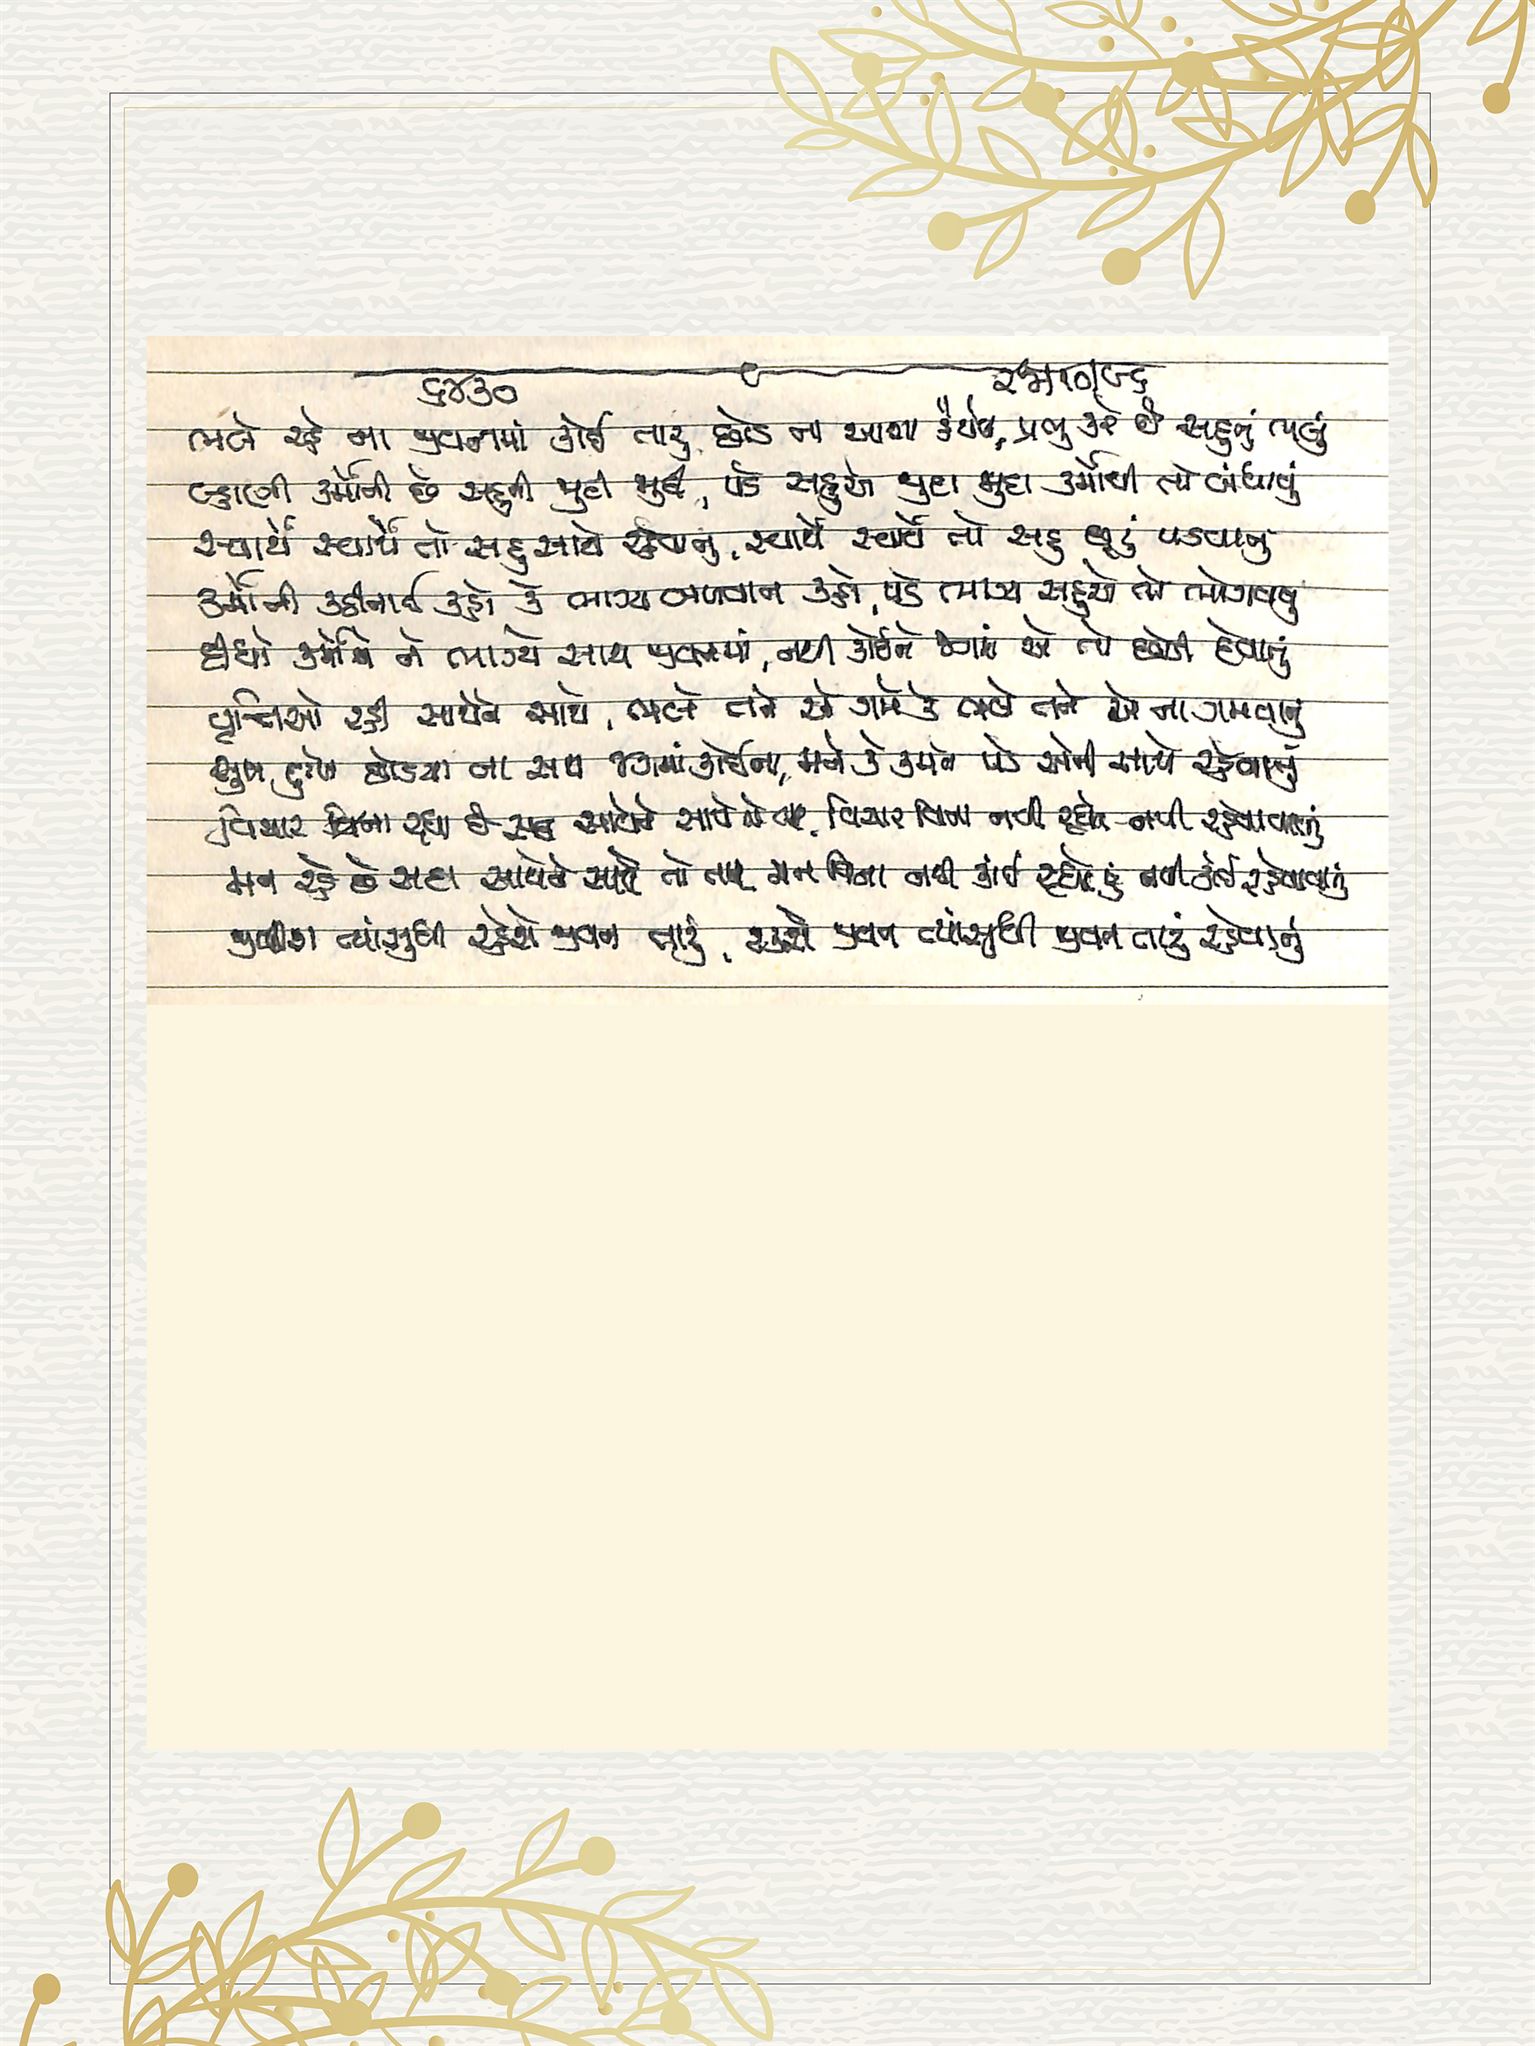 ૬૪૩૦
ભલે રહે ના જીવનમાં કોઈ તારું છોડ ના આશા હૈયેથી, પ્રભુ કરે છે સહુનું ભલું
કહાણી કર્મોની છે સહુની જુદી જુદી, પડે સહુએ જુદા જુદા કર્મોથી તો બંધાવું
સ્વાર્થે સ્વાર્થે તો સહુ સાથે રહેવાનું, સ્વાર્થે સ્વાર્થે તો સહુ છૂટું પડવાનું
કર્મોની કઠીનાઈ કહો કે ભાગ્ય બળવાન કહો, પડે ભાગ્ય સહુએ તો ભોગવવું
દીધો કર્મોએ ને ભાગ્યે સાથ જીવનમાં, નથી કોઈને જગમાં એ તો છોડી દેવાનું
વૃત્તિઓ રહી સાથેને સાથે, ભલે તને એ ગમે કે ભલે તને એ ના ગમવાનું
સુખ દુઃખે છોડયા ના સાથ જગમાં કોઈના, મને કે કમને પડે એની સાથે રહેવાનું
વિચાર વિના રહ્યા છે સાથેને સાથે વિચાર વિના નથી નથી રહેવાવાનું
મન રહે છે સદા સાથેને સાથે તો તારી મન વિના નથી કાંઈ રહ્યું નથી કોઈ રહેવાવાનું
ત્યાંસુધી રહેશે જીવન તારું, રહેશે જીવન ત્યાંસુધી જીવન તારું રહેવાનું